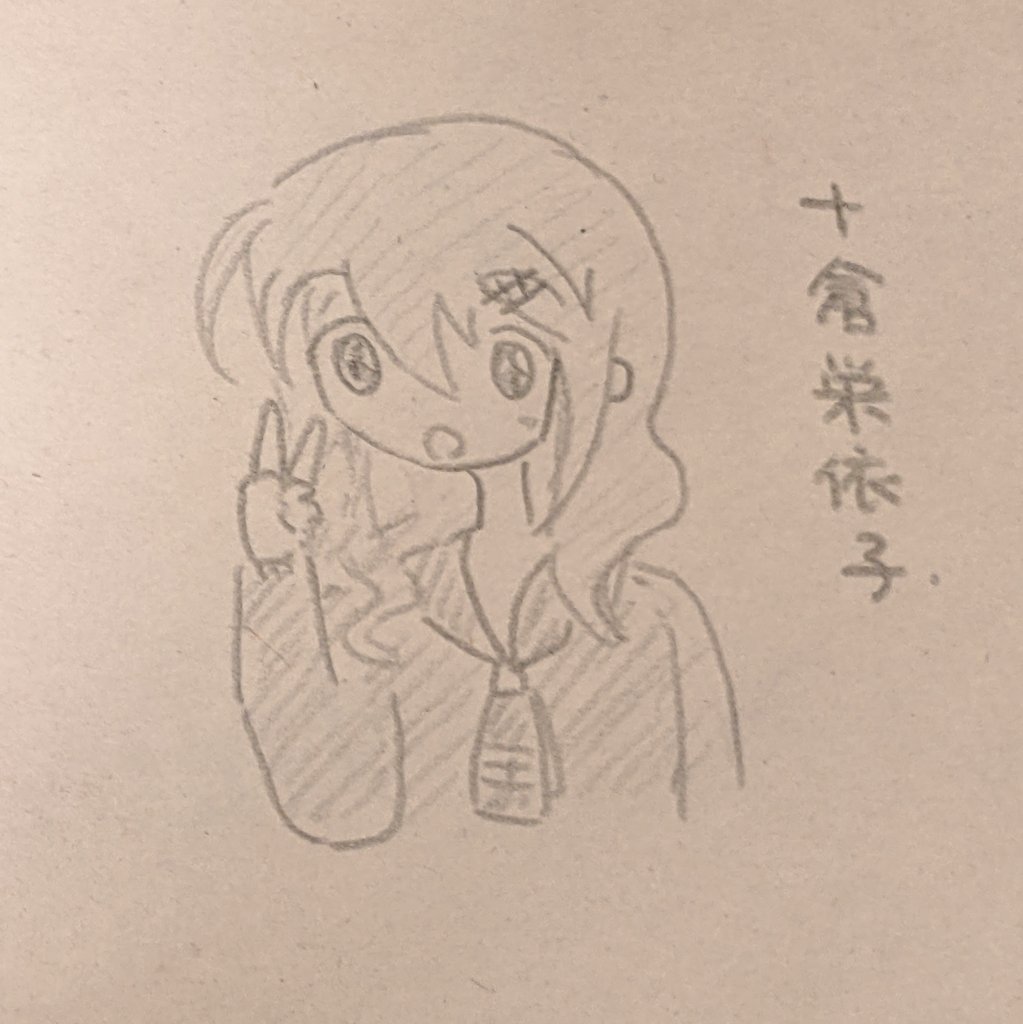 十倉栄依子